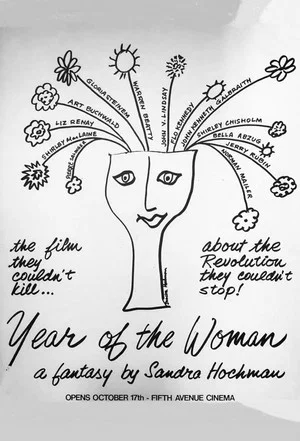 GLORIA STEINEM
WARREN BEATTY
JOHN V. LINDSAY
FLO KENNEDY
JOHN KENNETH GALBRAITH
ART BUCHWALD
LIZ RENAY
SHIRLEY MacLAINE
SHIRLEY CHISHOLM
BELLA ABZUG
JERRY RUBIN
NORMAN MAILER
the film
they
couldn't
kill...
about the
Revolution
they couldn't
stop!
Year of the Woman
a fantasy by Sandra Hochman
OPENS OCTOBER 17th - FIFTH AVENUE CINEMA